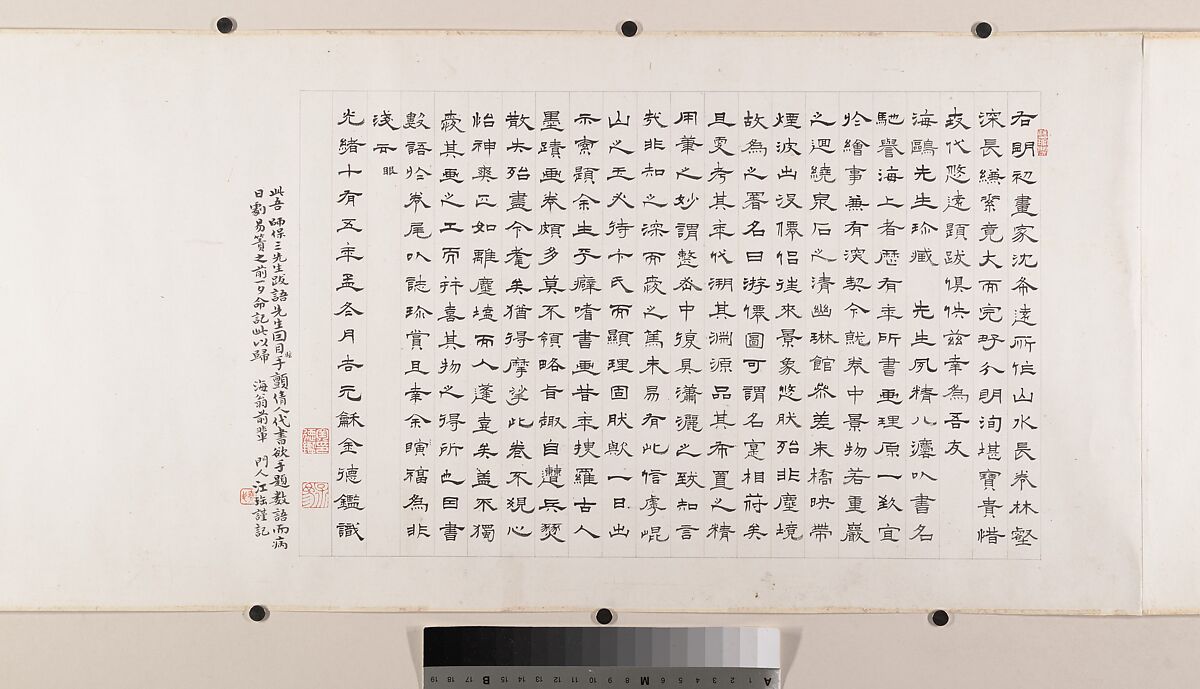 右明初畫家沈希遠所作山水長卷林壑
深長縑素竟大而完好分明洵堪寶貴惜
年代悠遠題跋俱佚茲幸為吾友
海鷗先生珍藏 先生夙精八濃以書名
馳譽海上者歷有年所書画理原一致宜
於繪事兼有深契今就卷中景物若重巖
之迴繞泉石之清幽琳館參差朱橋映帶
煙波出沒僊侶往來景象悠然殆非塵境
故為之署名曰游僊圖可謂名寔相符矣
且更考其年代溯其淵源品其布置之精
用筆之妙謂整密中復具瀟灑之致知言
哉非知之深而愛之篤未易有此信虖崐
山之玉必待卞氏而顯理固然歟一日出
示索題余生平癖嗜書画昔年搜羅古人
墨蹟画卷頗多莫不領略旨趣自遭兵燹
散失殆盡今耄矣猶得摩挲此卷不覺心
怡神爽正如離塵壒而入蓬壺矣蓋不獨
愛其画之工而并喜其物之得所也因書
數語於卷尾以誌珍賞且幸余暝福為非
淺 眼 亦
光緒十有五年孟冬月吉元穌金德鑑識
此吾師保三先生跋語先生因目眩手顫倩人代書欲手題數語而病
日劇易簀之前一夕命記此以歸 海翁前輩 門人江謹記